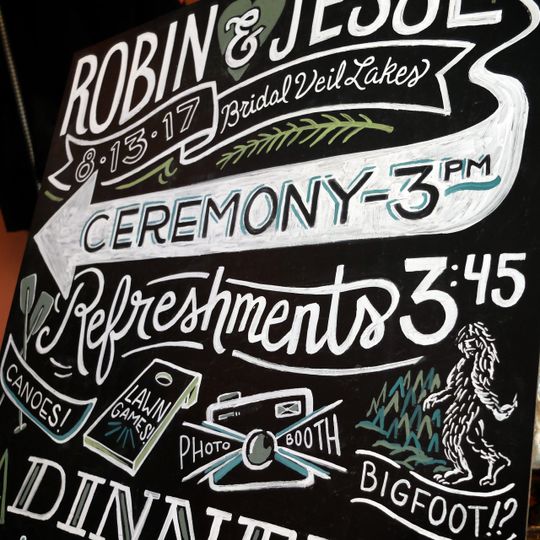 ROBIN & JESSE
8·13·17 Bridal Veil Lakes
CEREMONY-3PM
Refreshments 3:45
CANOES!
LAWN GAMES!
PHOTO BOOTH
BIGFOOT!?
DINNE